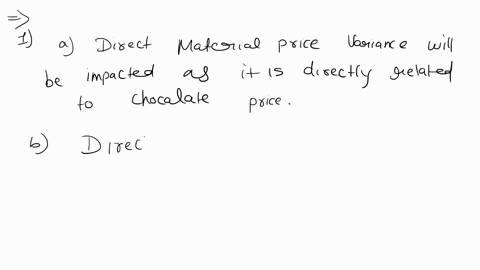 =>
1) a) Direct Material price Variance will
be impacted as it is directly related
to chocalate price.
b) Direc